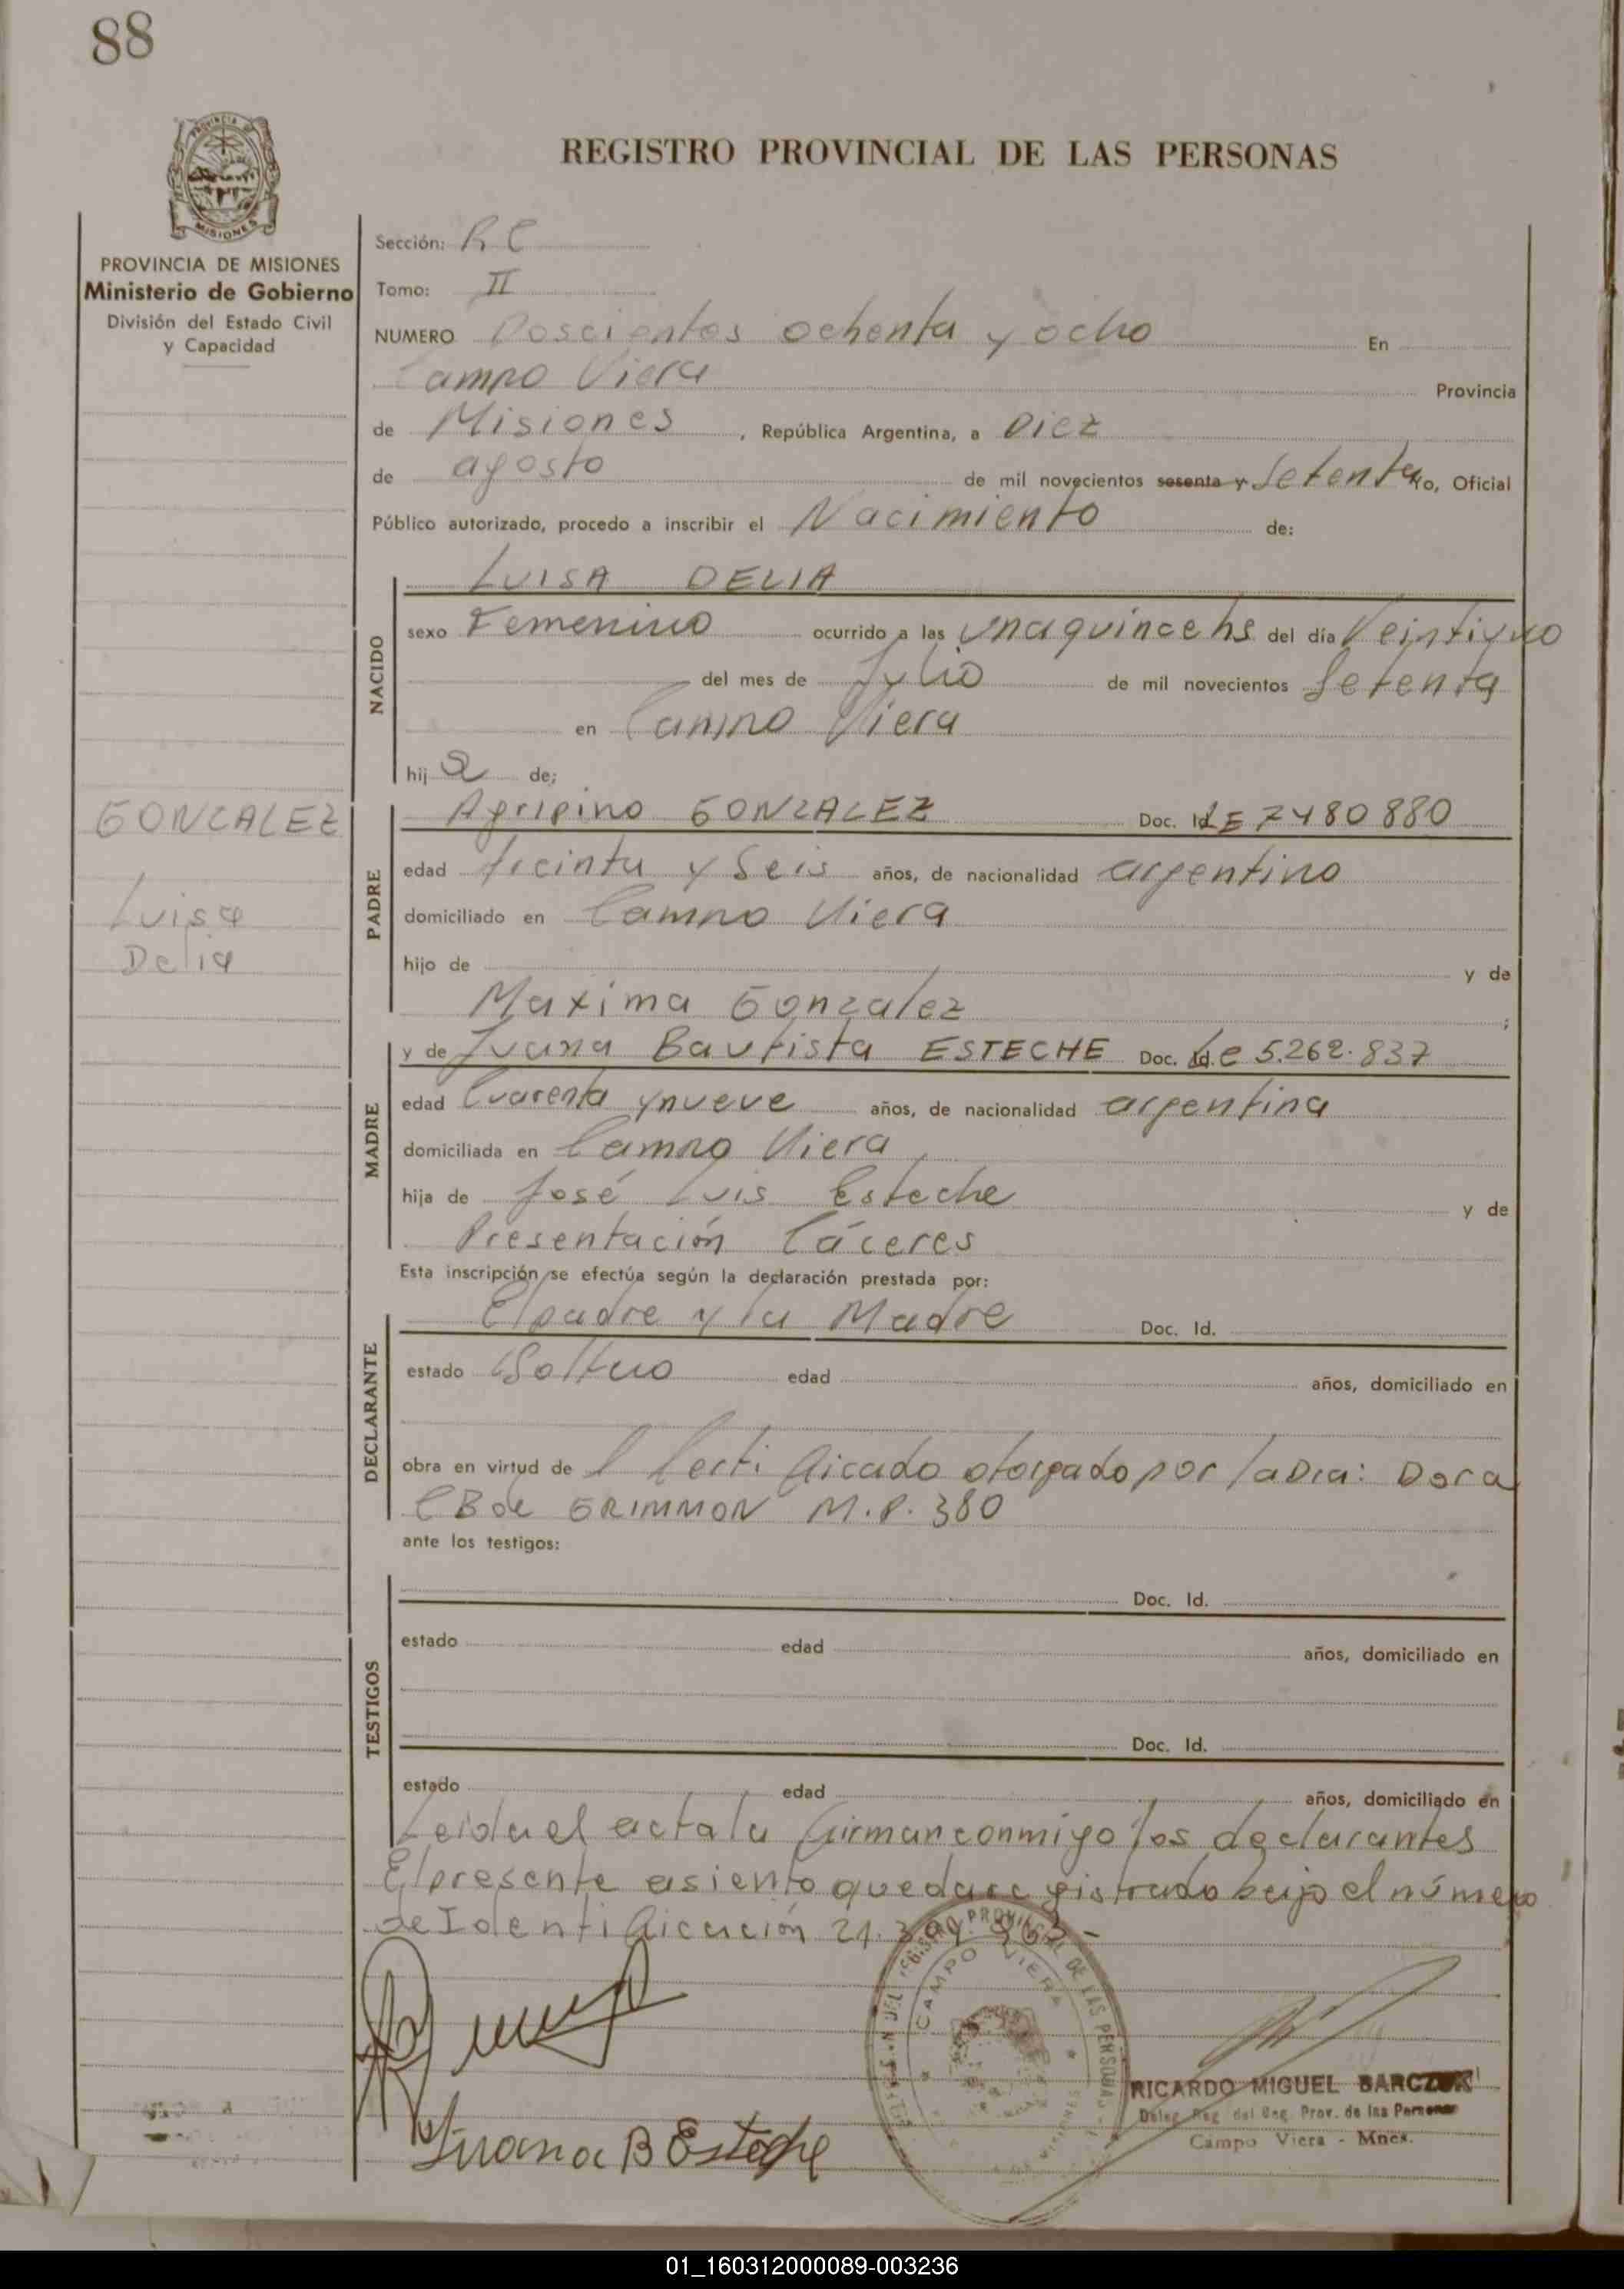 88
PROVINCIA DE
MISIONES
REGISTRO PROVINCIAL DE LAS PERSONAS
PROVINCIA DE MISIONES
Ministerio de Gobierno
División del Estado Civil
y Capacidad
GONZALEZ
Luisa
Delia
Sección: R C
Tomo: II
NUMERO Doscientos ochenta y ocho En
Campo Viera Provincia
de Misiones, República Argentina, a Diez
de agosto de mil novecientos sesenta y Setenta Yo, Oficial
Público autorizado, procedo a inscribir el Nacimiento de:
NACIDO
LUISA DELIA
sexo Femenino ocurrido a las una quince hs del día Veintiuno
del mes de Julio de mil novecientos Setenta
en Campo Viera
hij a de;
PADRE
Agripino GONZALEZ Doc. Id. LE 7480880
edad treinta y Seis años, de nacionalidad argentino
domiciliado en Campo Viera
hijo de y de
Maxima Gonzalez ;
MADRE
y de Juana Bautista ESTECHE Doc. Id. Lc 5.262.837
edad Cuarenta y nueve años, de nacionalidad argentina
domiciliada en Campo Viera
hija de José Luis Esteche y de
Presentación Cáceres
Esta inscripción se efectúa según la declaración prestada por:
DECLARANTE
El padre y la Madre Doc. Id.
estado edad años, domiciliado en
obra en virtud de l Certificado otorgado por la Dra: Dora
C B de GRIMMON M.P. 380
ante los testigos:
TESTIGOS
Doc. Id.
estado edad años, domiciliado en
Doc. Id.
estado edad años, domiciliado en
Leida el acta la firman conmigo los declarantes
El presente asiento queda registrado bajo el número
de Identificación 21.
CAMPO VIERA
Juana B Esteche
RICARDO MIGUEL BARCZUK
Deleg. Reg. del Reg. Prov. de las Personas
Campo Viera - Mnes.
01_160312000089-003236